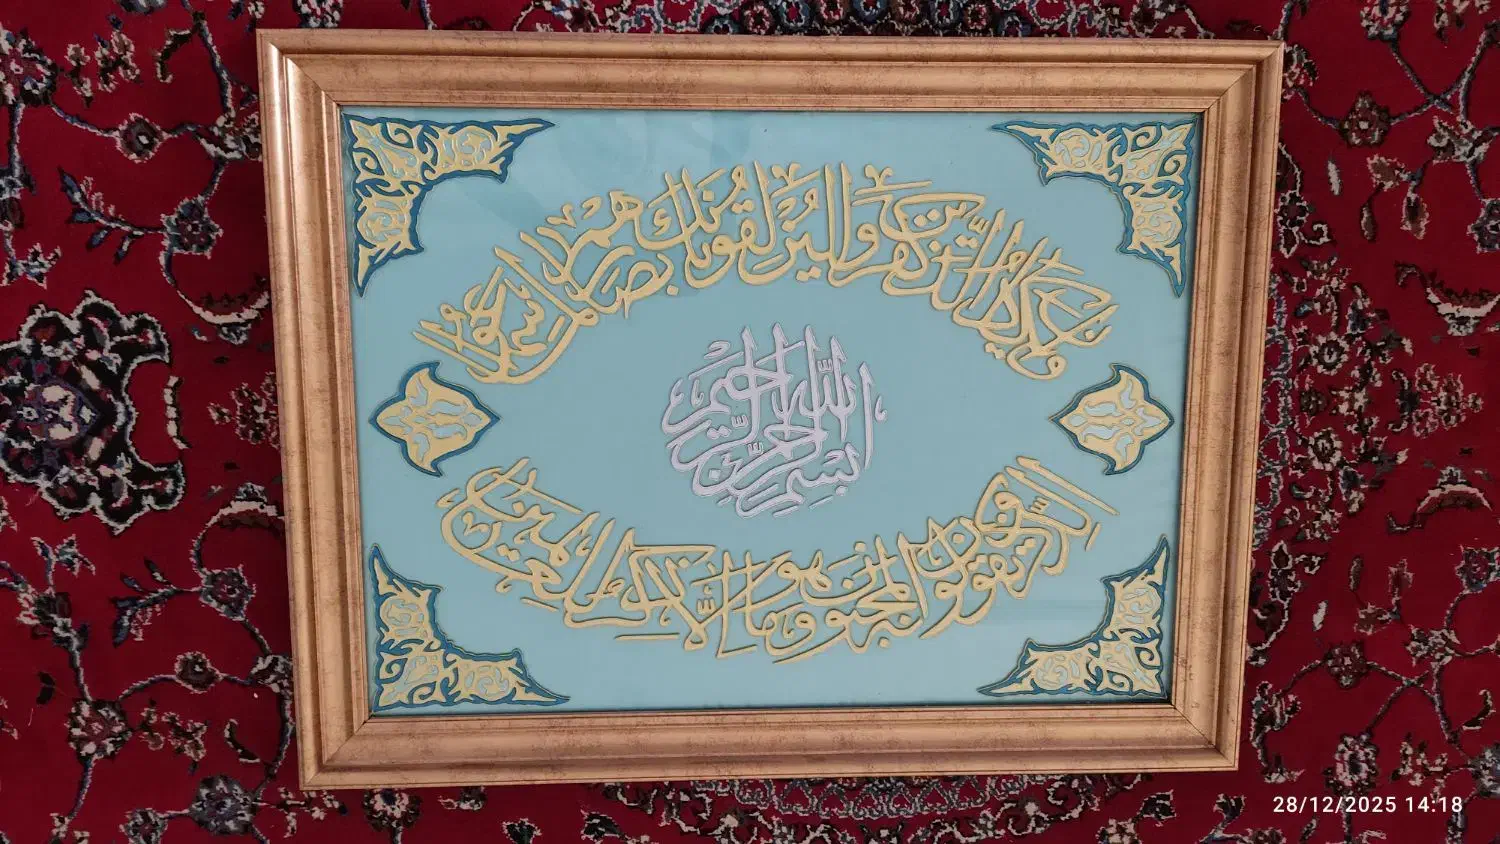 بسم الله الرحمن الرحيم
وإن يكاد الذين كفروا ليزلقونك بأبصارهم لما سمعوا
الذكر ويقولون إنه لمجنون وما هو إلا ذكر للعالمين
28/12/2025 14:18